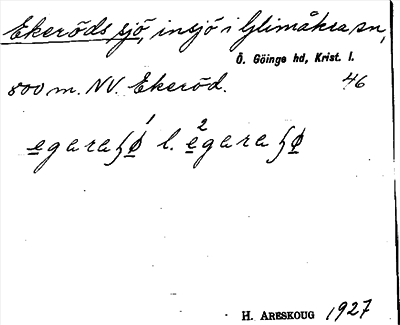 Ekeröds sjö, insjö i Glimåkra sn,
Ö. Göinge hd, Krist. l.
800 m. NV. Ekeröd. 46
H. ARESKOUG 1927